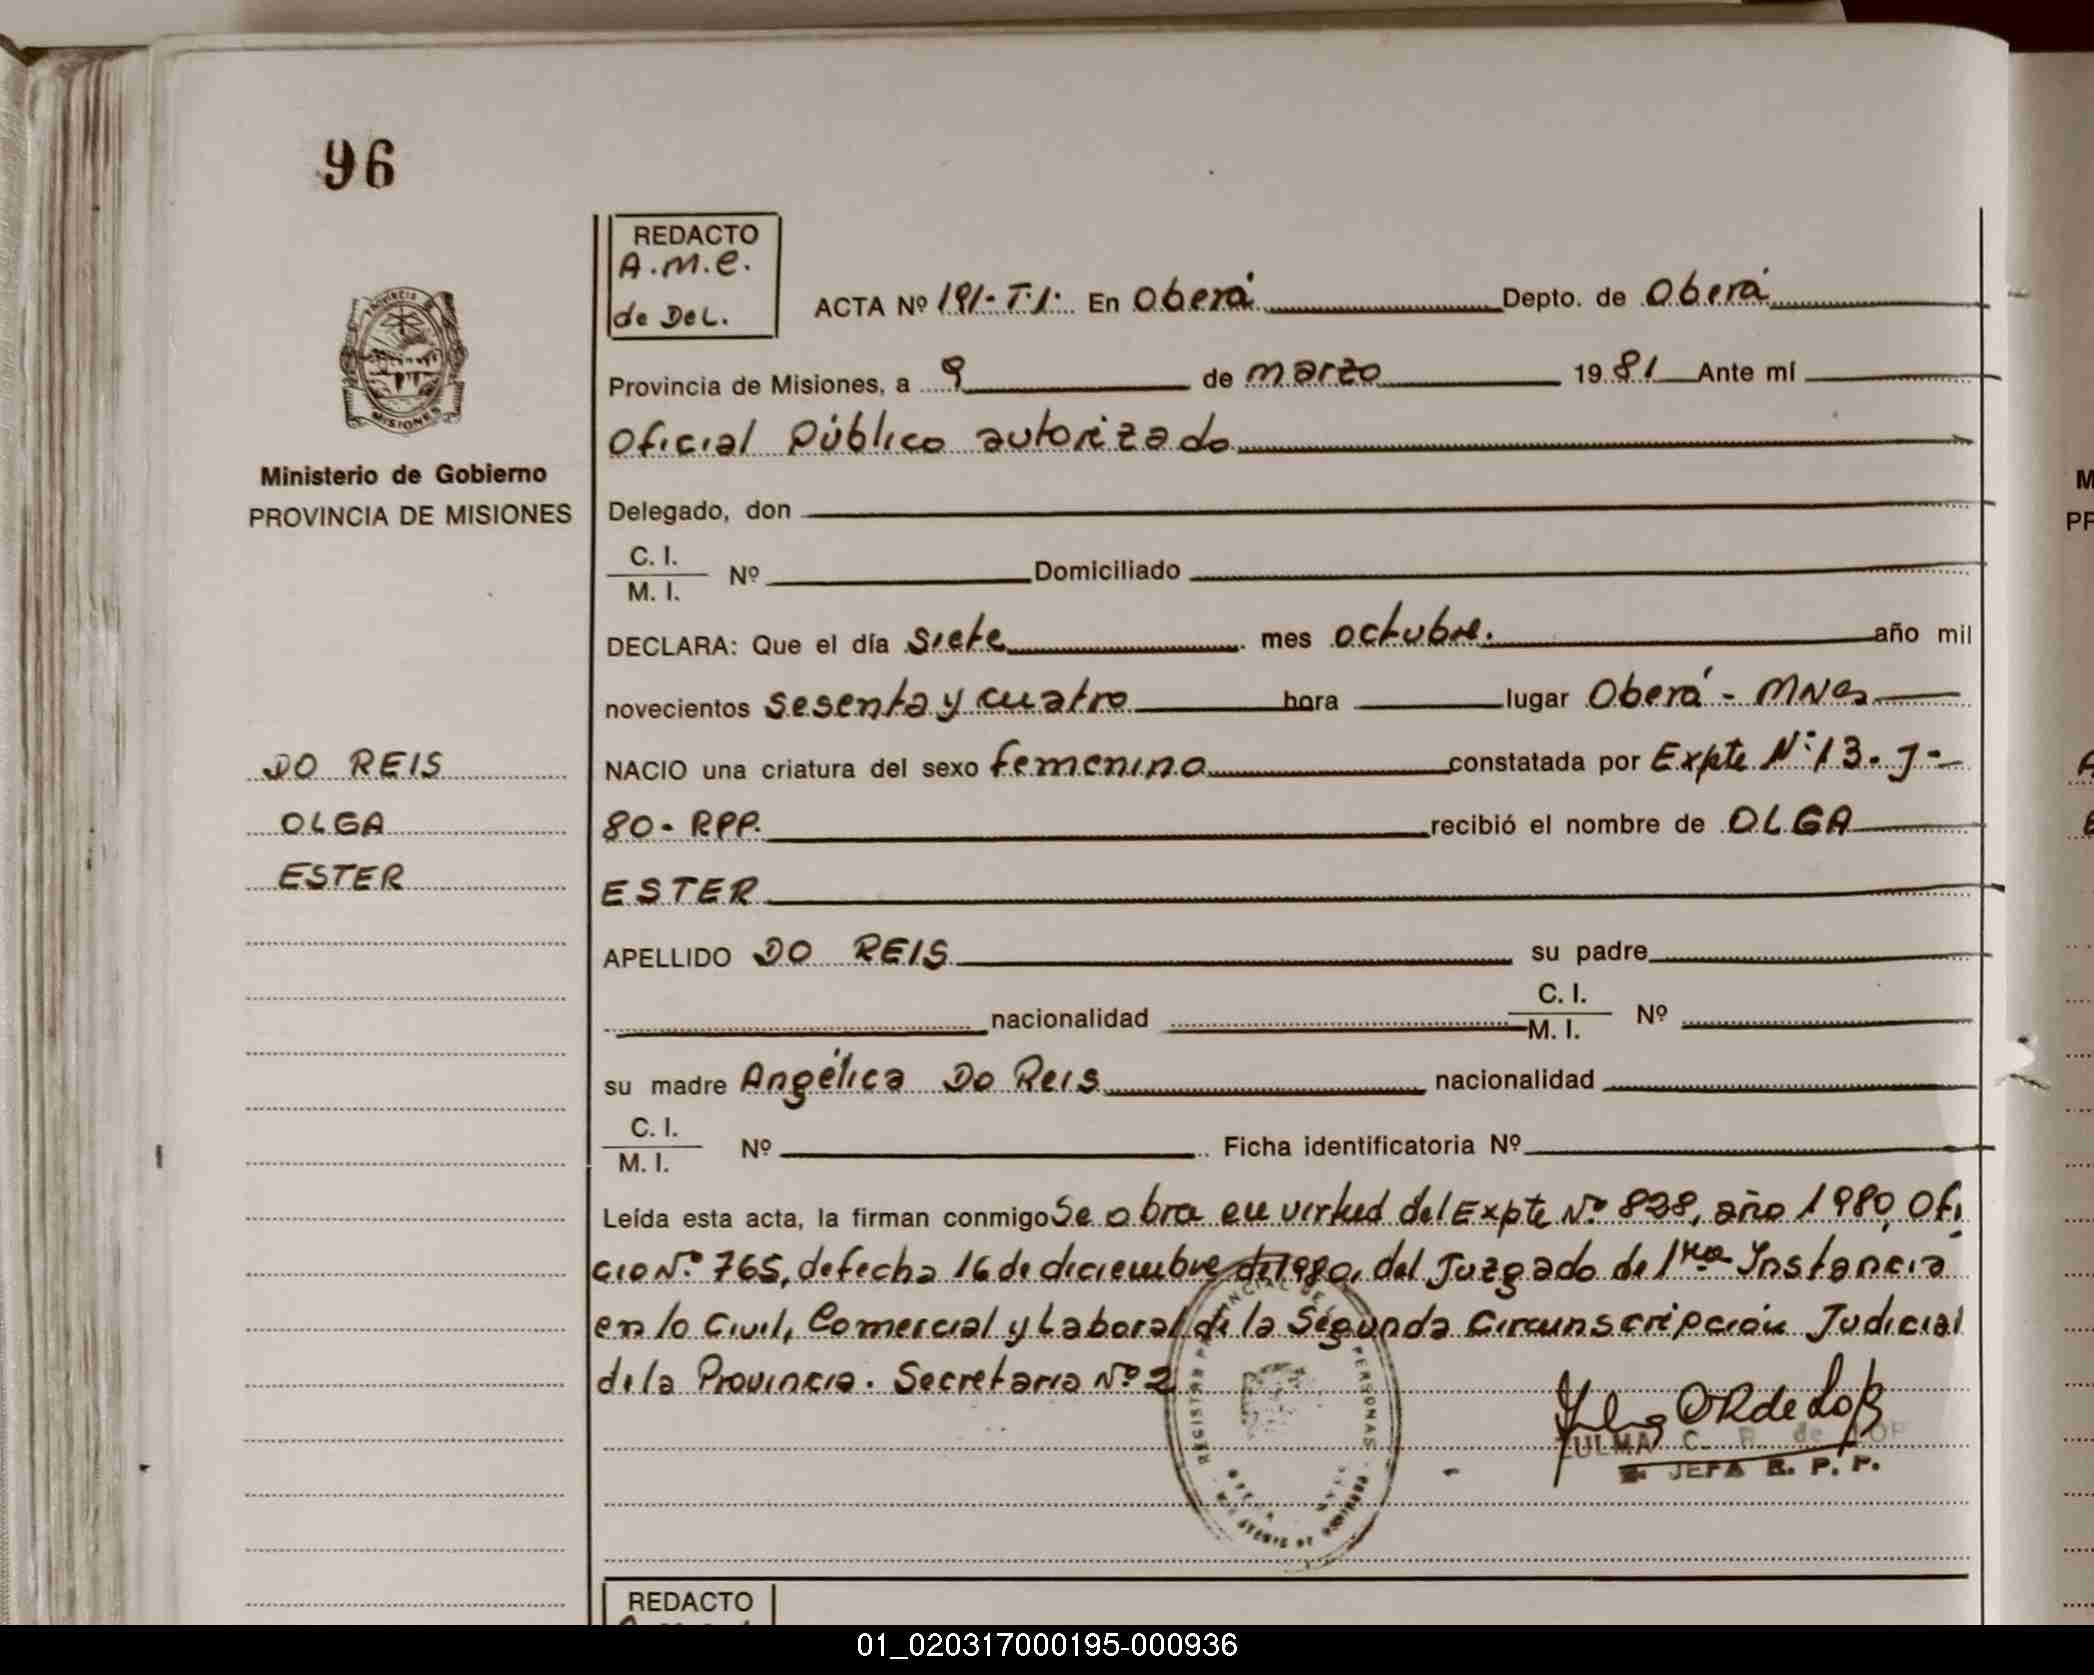 96
REDACTO
A.M.E.
de DEL.
ACTA Nº 191-T.1. En Oberá Depto. de Oberá
Provincia de Misiones, a 9 de marzo 1981 Ante mí
Oficial Público autorizado
Ministerio de Gobierno
PROVINCIA DE MISIONES
Delegado, don
C. I.
M. I. Nº Domiciliado
DECLARA: Que el día siete mes octubre. año mil
novecientos sesenta y cuatro hora lugar Oberá - MNes
DO REIS
NACIO una criatura del sexo femenino constatada por Expte Nº 13. J-
OLGA
80- RPP. recibió el nombre de OLGA
ESTER
ESTER
APELLIDO DO REIS su padre
nacionalidad C. I.
M. I. Nº
su madre Angélica Do Reis nacionalidad
C. I.
M. I. Nº Ficha identificatoria Nº
Leída esta acta, la firman conmigo Se obra en virtud del Expte Nº 828, año 1980, Ofi
cio Nº 765, de fecha 16 de diciembre de 1980, del Juzgado de 1ra Instancia
en lo Civil, Comercial y Laboral de la Segunda Circunscripción Judicial
de la Provincia. Secretaría Nº 2
ZULMA C. R. de LOP
JEFA R. P. P.
REGISTRO PROVINCIAL DE PERSONAS
REDACTO
M
PR
01_020317000195-000936